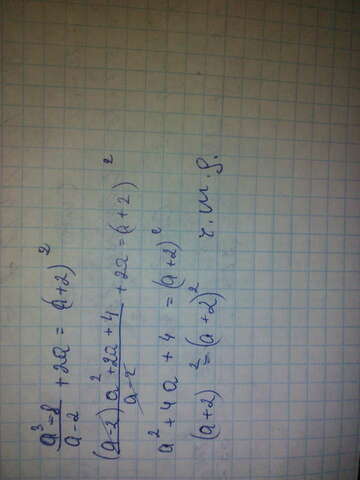 a³-8/a-2 + 2a = (a+2)²
(a-2)a²+2a+4/a-2 + 2a = (a+2)²
a² + 4a + 4 = (a+2)²
(a+2)² = (a+2)² ч.т.д.